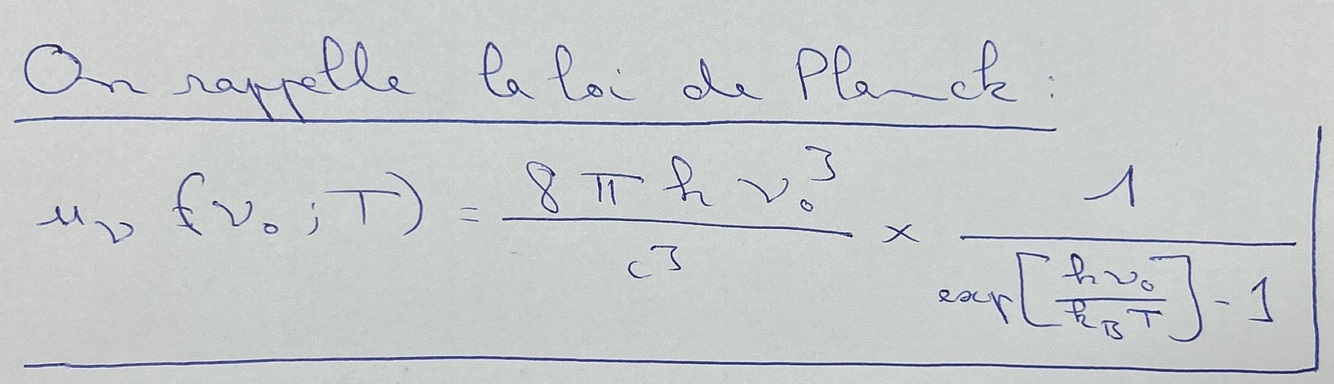 On rappelle la loi de Planck :
u_ν (ν₀ ; T) = 8 π h ν₀³ / c³ × 1 / (exp[hν₀ / k_B T] - 1)